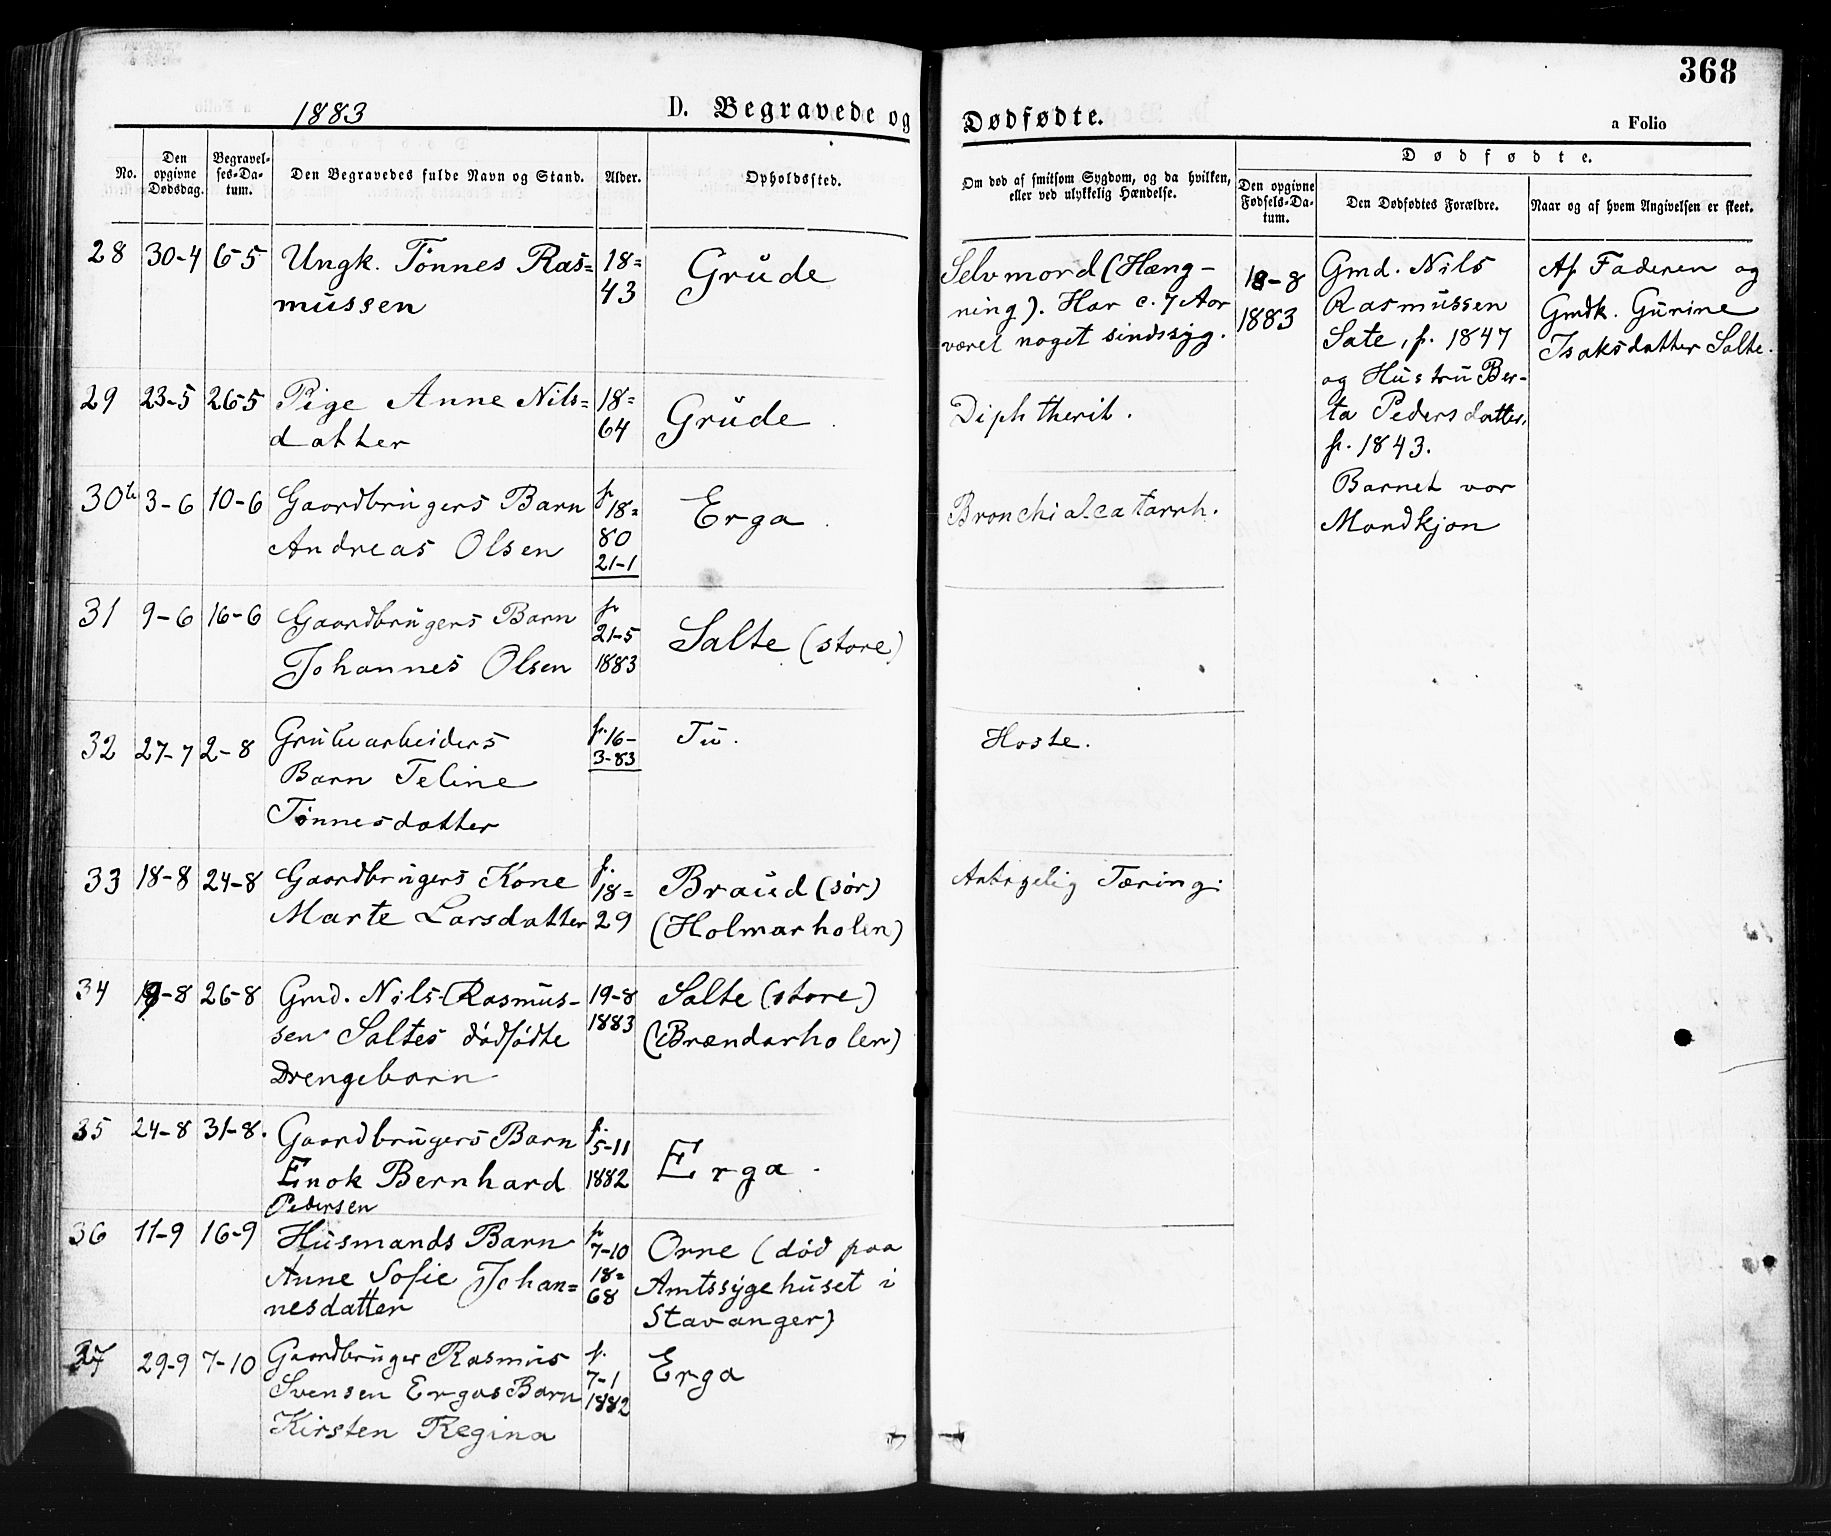 368
1883
D. Begravede og Dødfødte.
a Folio
No.
Den opgivne Dødsdag.
Begravelses-Datum.
Den Begravedes fulde Navn og Stand.
Alder.
Opholdssted.
Om død af smitsom Sygdom, og da hvilken,
eller ved ulykkelig Hændelse.
Dødfødte.
Den opgivne Fødsels-Datum.
Den Dødfødtes Forældre.
Naar og af hvem Angivelsen er skeet.
28 30-4 6-5 Ungk. Tønnes Ras= 18= Grude
mussen 43
Selvmord (Hæng-
ning). Har c. 7 Aar
været noget sindssyg.
18-8
1883
Gmd. Nils
Rasmussen
Sate, f. 1847
og Hustru Ber-
ta Pedersdatter,
f. 1843.
Barnet var
Mandkjøn
Af Faderen og
Gmdk. Gurine
Isaksdatter Salte.
29 23-5 26-5 Pige Anne Nils= 18= Grude.
datter 64
Diphtherit.
30te 3-6 10-6 Gaardbrugers Barn f 18= Erga.
Andreas Olsen 80
21-1
Bronchialcatarrh.
31 9-6 16-6 Gaardbrugers Barn f 21-5 Salte (store)
Johannes Olsen 1883
32 27-7 2-8 Grubearbeiders f. 16- Tu.
Barn Teline 3-83
Tønnesdatter
Hoste.
33 18-8 24-8 Gaardbrugers Kone f. 18= Braud (sør)
Marte Larsdatter 29 (Holmarholen)
Antagelig Tæring.
34 19-8 26-8 Gmd. Nils Rasmus- 19-8 Salte (store)
sen Saltes dødfødte 1883 (Brændarholen)
Drengebarn
35 24-8 31-8. Gaardbrugers Barn f. 5-11 Erga.
Enok Bernhard 1882
Pedersen
36 11-9 16-9 Husmands Barn f 7-10 Orre (død paa
Anne Sofie Johan= 18= Amtssygehuset i
nesdatter 68 Stavanger)
37 29-9 7-10 Gaardbruger Rasmus f. Erga
Svensen Ergas Barn 7-1
Kirsten Regina 1882